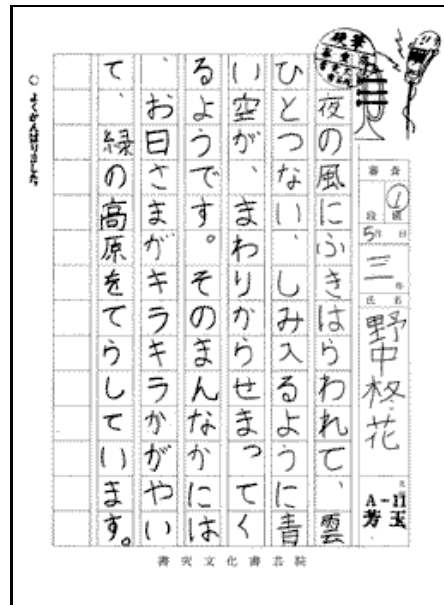 硬筆
審査
①
段級
5月 日
三年
氏名
野中柊花
A-11
芳玉
夜の風にふきはらわれて、雲
ひとつない、しみ入るように青
い空が、まわりからせまってく
るようです。そのまんなかには
、お日さまがキラキラかがやい
て、緑の高原をてらしています。
○よくがんばりました
書究文化書芸院